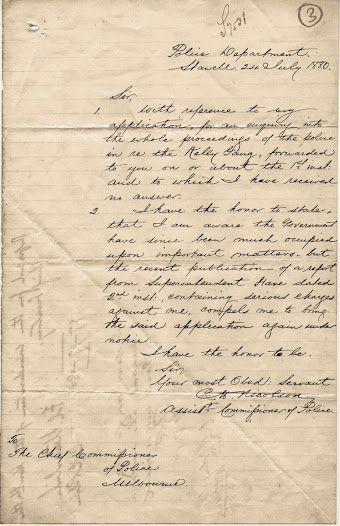 S7531
3
Police Department.
Stawell 24 July 1880.
Sir,
1. With reference to my
application, for an enquiry into
the whole proceedings of the Police
in re the Kelly Gang, forwarded
to you on or about the 1st inst.
and to which I have received
no answer.
2 I have the honor to state,
that I am aware the Government
have since been much occupied
upon important matters, but
the recent publication of a report
from Superintendent Hare dated
2nd inst. containing serious charges
against me, compels me to bring
the said application again under
notice.
I have the honor to be.
Sir,
Your most Obedt. Servant
C H Nicolson
Assistt. Commissioner of Police.
To
The Chief Commissioner
of Police
Melbourne.